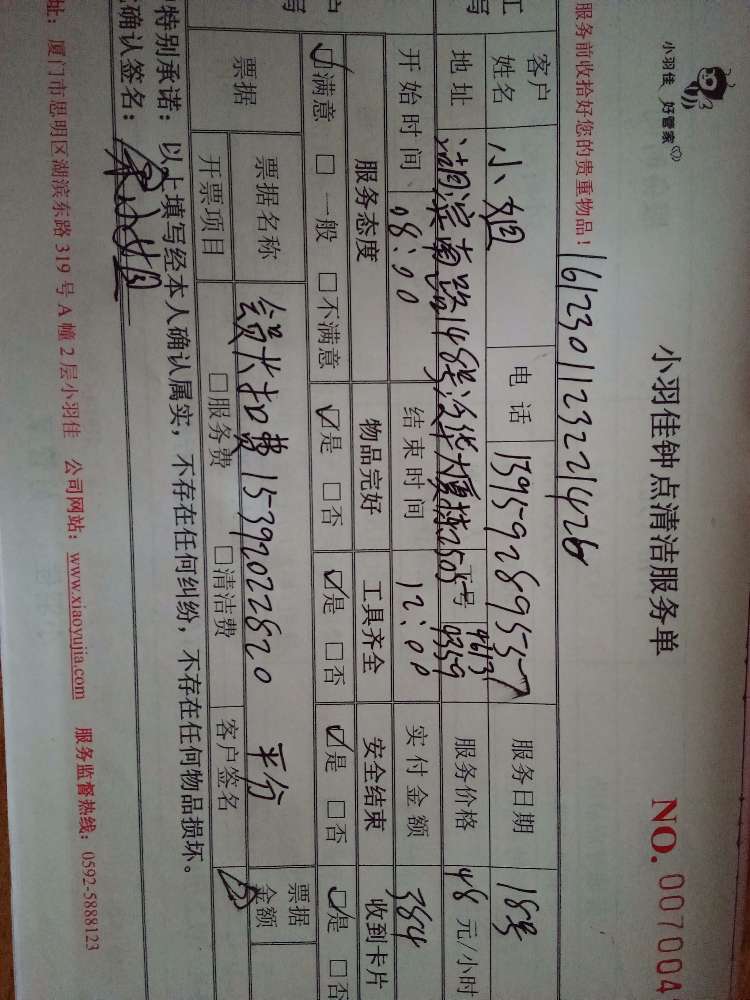 小羽佳 好管家
小羽佳钟点清洁服务单
NO. 007004
服务前收拾好您的贵重物品！
161230112322142b
客户姓名 小姐 电话 13959289537 服务日期 18号
地址 湖滨南路148号 大厦 2505 工号 4613 9359 服务价格 48 元/小时
开始时间 08:00 结束时间 12:00 实付金额 384
服务态度 物品完好 工具齐全 安全结束 收到卡片
☑满意 □一般 □不满意 ☑是 □否 ☑是 □否 ☑是 □否 ☑是 □否
票据 票据名称 会员卡扣费 15392022820 平分 票据金额
开票项目 □服务费 □清洁费 客户签名
特别承诺：以上填写经本人确认属实，不存在任何纠纷，不存在任何物品损坏。
确认签名：
址：厦门市思明区湖滨东路 319 号 A 幢 2 层小羽佳 公司网站：www.xiaoyujia.com 服务监督热线：0592-5888123